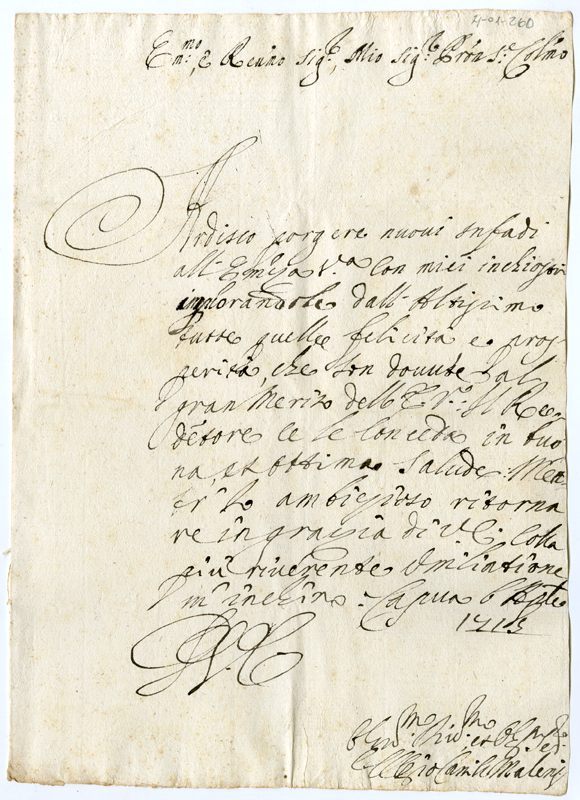 4-01-260
E.mo e R.emo Sig.r, Mio Sig.r e Pron. Colmo
Ardisco porgere nuovi infadi
all' Em.za V.a con miei inchiostri
implorandole dall' Altissimo
tutte quelle felicità e pros-
perità, che son dovute al
gran Merito dell' E. V.: Il Re-
dētore ce le conceda in buo
na, et ottima salude: Men-
tr' Io ambizioso ritorna
re in grazia di V. E. colla
più riverente Umiliatione
m' inchino: Capua 6
V. E.